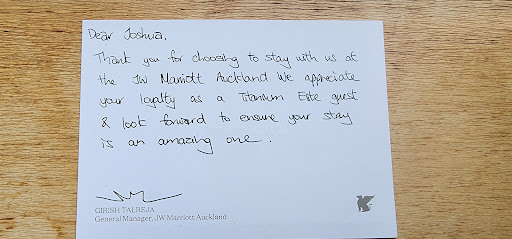 Dear Joshua,
Thank you for choosing to stay with us at
the JW Marriott Auckland. We appreciate
your loyalty as a Titanium Elite guest
& look forward to ensure your stay
is an amazing one.
GIRISH TALREJA
General Manager, JW Marriott Auckland